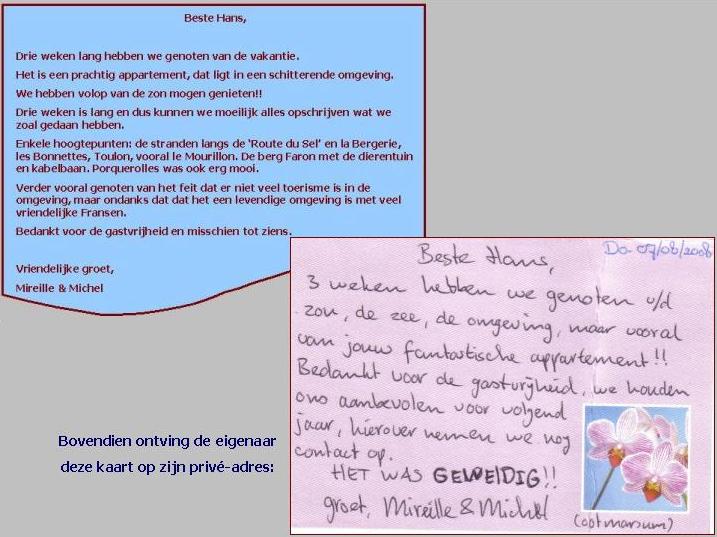 Beste Hans,
Drie weken lang hebben we genoten van de vakantie.
Het is een prachtig appartement, dat ligt in een schitterende omgeving.
We hebben volop van de zon mogen genieten!!
Drie weken is lang en dus kunnen we moeilijk alles opschrijven wat we
zoal gedaan hebben.
Enkele hoogtepunten: de stranden langs de 'Route du Sel' en la Bergerie,
les Bonnettes, Toulon, vooral le Mourillon. De berg Faron met de dierentuin
en kabelbaan. Porquerolles was ook erg mooi.
Verder vooral genoten van het feit dat er niet veel toerisme is in de
omgeving, maar ondanks dat dat het een levendige omgeving is met veel
vriendelijke Fransen.
Bedankt voor de gastvrijheid en misschien tot ziens.
Vriendelijke groet,
Mireille & Michel
Bovendien ontving de eigenaar
deze kaart op zijn privé-adres:
Do 07/08/2008
Beste Hans,
3 weken hebben we genoten v/d
zon, de zee, de omgeving, maar vooral
van jouw fantastische appartement!!
Bedankt voor de gastvrijheid, we houden
ons aanbevolen voor volgend
jaar, hierover nemen we nog
contact op.
HET WAS GEWELDIG!!
groet, Mireille & Michel